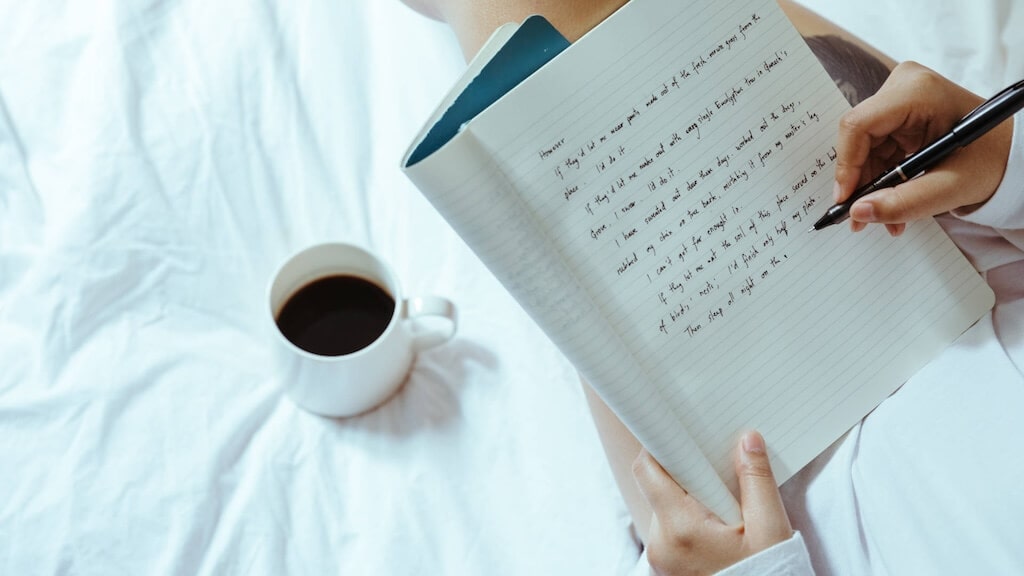 However
If they'd let me wear pants made out of the first mouse grass from the
place I'd do it.
If they'd let me make out with every single Eucalyptus tree in Quesch's
Grove, I never I'd do it.
I have sweated out dear them days. worked out the dregs,
rubbed my skin on the bark, mistaking it from my master's leg
I can't get far enough in.
If they let me eat the soil of this place served on the bed
of birds' nests, I'd finish only half my plate
Then sleep all night on the